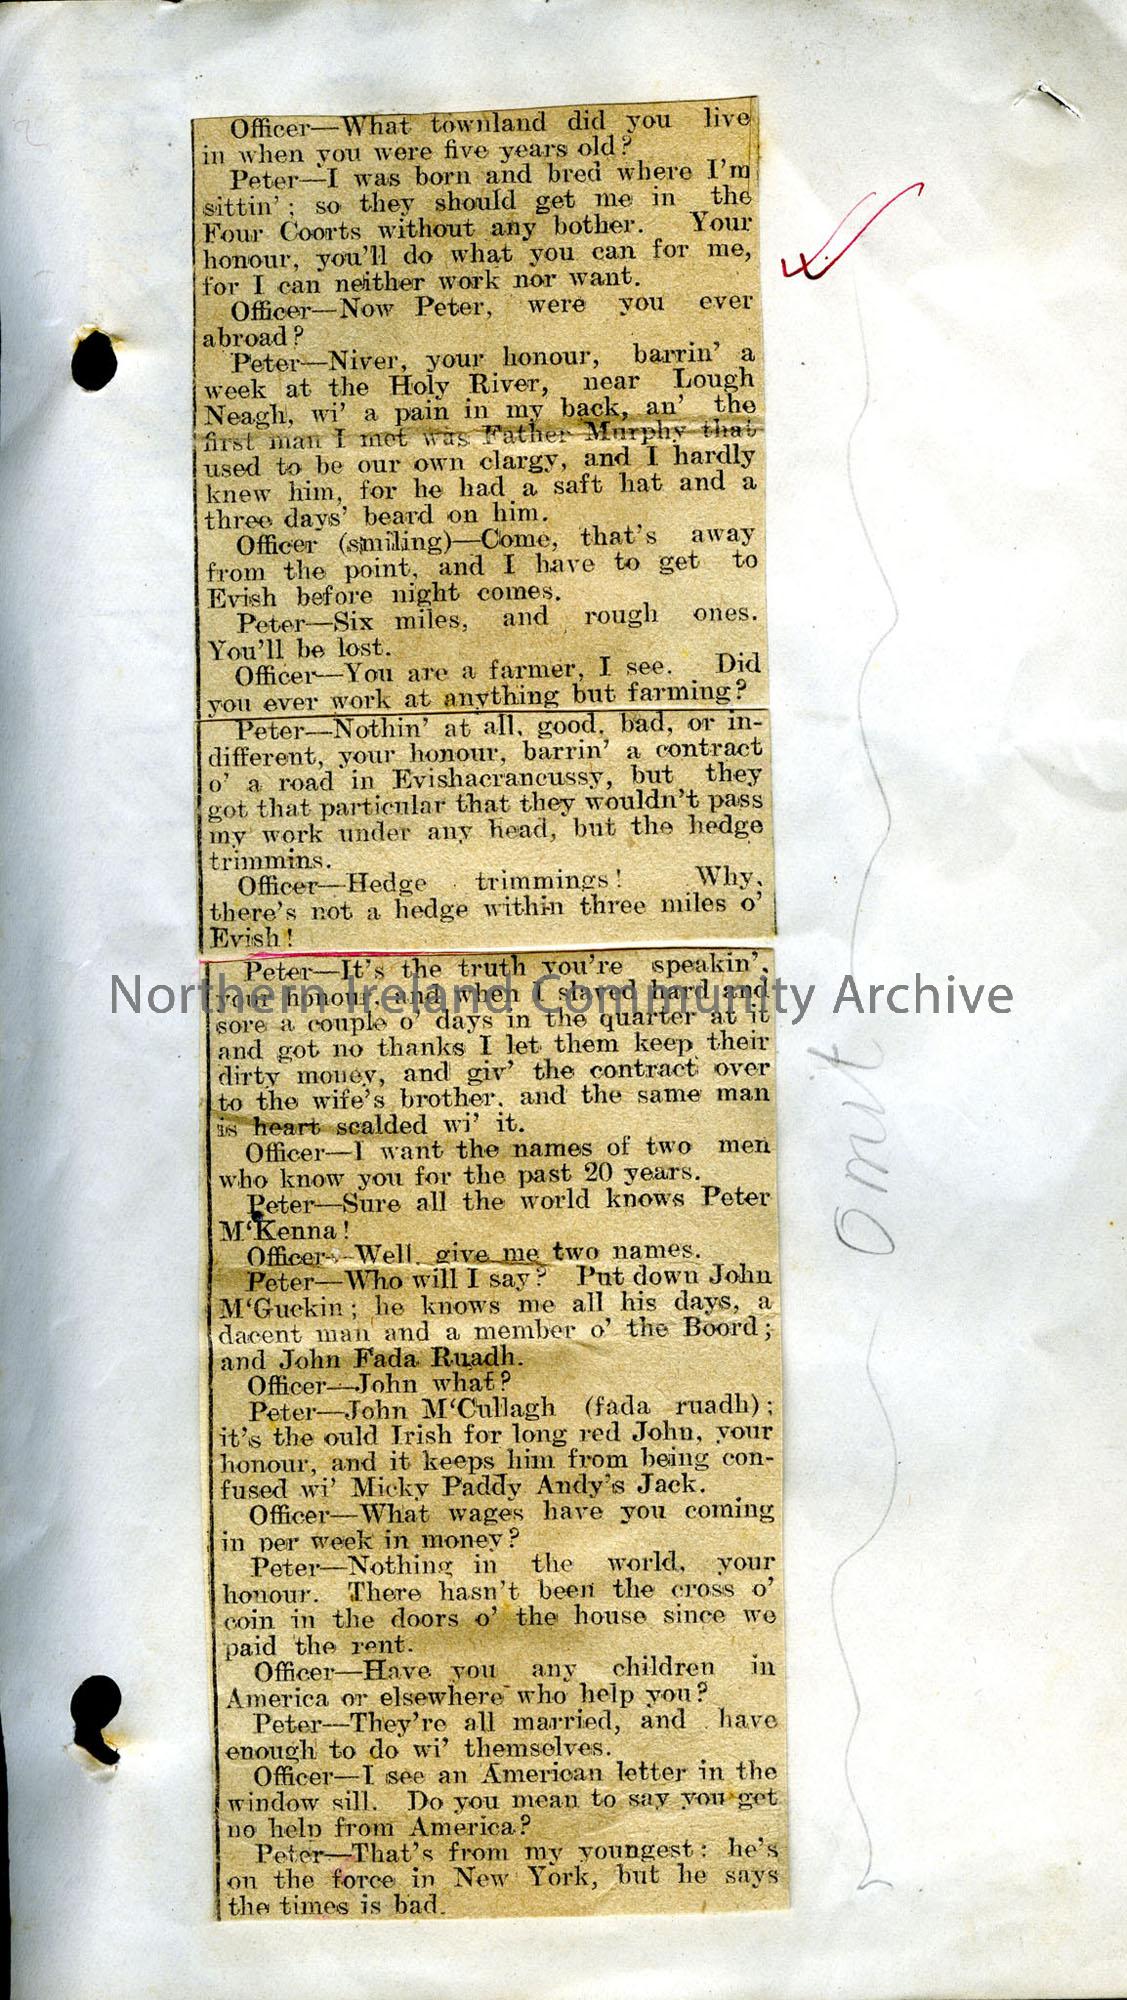 Officer—What townland did you live
in when you were five years old?
Peter—I was born and bred where I'm
sittin'; so they should get me in the
Four Coorts without any bother. Your
honour, you'll do what you can for me,
for I can neither work nor want.
Officer—Now Peter, were you ever
abroad?
Peter—Niver, your honour, barrin' a
week at the Holy River, near Lough
Neagh, wi' a pain in my back, an' the
first man I met was Father Murphy that
used to be our own clargy, and I hardly
knew him, for he had a saft hat and a
three days' beard on him.
Officer (smiling)—Come, that's away
from the point, and I have to get to
Evish before night comes.
Peter—Six miles, and rough ones.
You'll be lost.
Officer—You are a farmer, I see. Did
you ever work at anything but farming?
Peter—Nothin' at all, good, bad, or in-
different, your honour, barrin' a contract
o' a road in Evishacrancussy, but they
got that particular that they wouldn't pass
my work under any head, but the hedge
trimmins.
Officer—Hedge trimmings! Why,
there's not a hedge within three miles o'
Evish!
Peter—It's the truth you're speakin',
your honour, and when I slaved hard and
sore a couple o' days in the quarter at it
and got no thanks I let them keep their
dirty money, and giv' the contract over
to the wife's brother, and the same man
is heart scalded wi' it.
Officer—I want the names of two men
who know you for the past 20 years.
Peter—Sure all the world knows Peter
M'Kenna!
Officer—Well, give me two names.
Peter—Who will I say? Put down John
M'Guckin; he knows me all his days, a
dacent man and a member o' the Boord;
and John Fada Ruadh.
Officer—John what?
Peter—John M'Cullagh (fada ruadh);
it's the ould Irish for long red John, your
honour, and it keeps him from being con-
fused wi' Micky Paddy Andy's Jack.
Officer—What wages have you coming
in per week in money?
Peter—Nothing in the world, your
honour. There hasn't been the cross o'
coin in the doors o' the house since we
paid the rent.
Officer—Have you any children in
America or elsewhere who help you?
Peter—They're all married, and have
enough to do wi' themselves.
Officer—I see an American letter in the
window sill. Do you mean to say you get
no help from America?
Peter—That's from my youngest: he's
on the force in New York, but he says
the times is bad.
Omit
Northern Ireland Community Archive